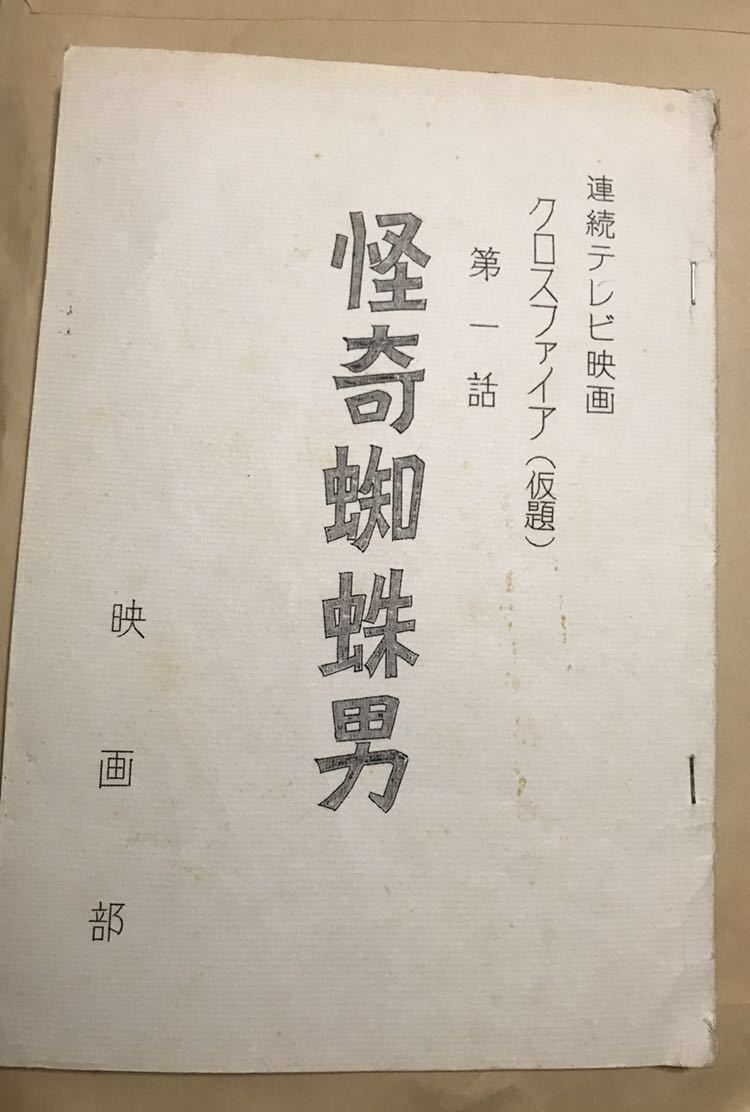 連続テレビ映画
クロスファイア(仮題)
第一話
怪奇蜘蛛男
映画部